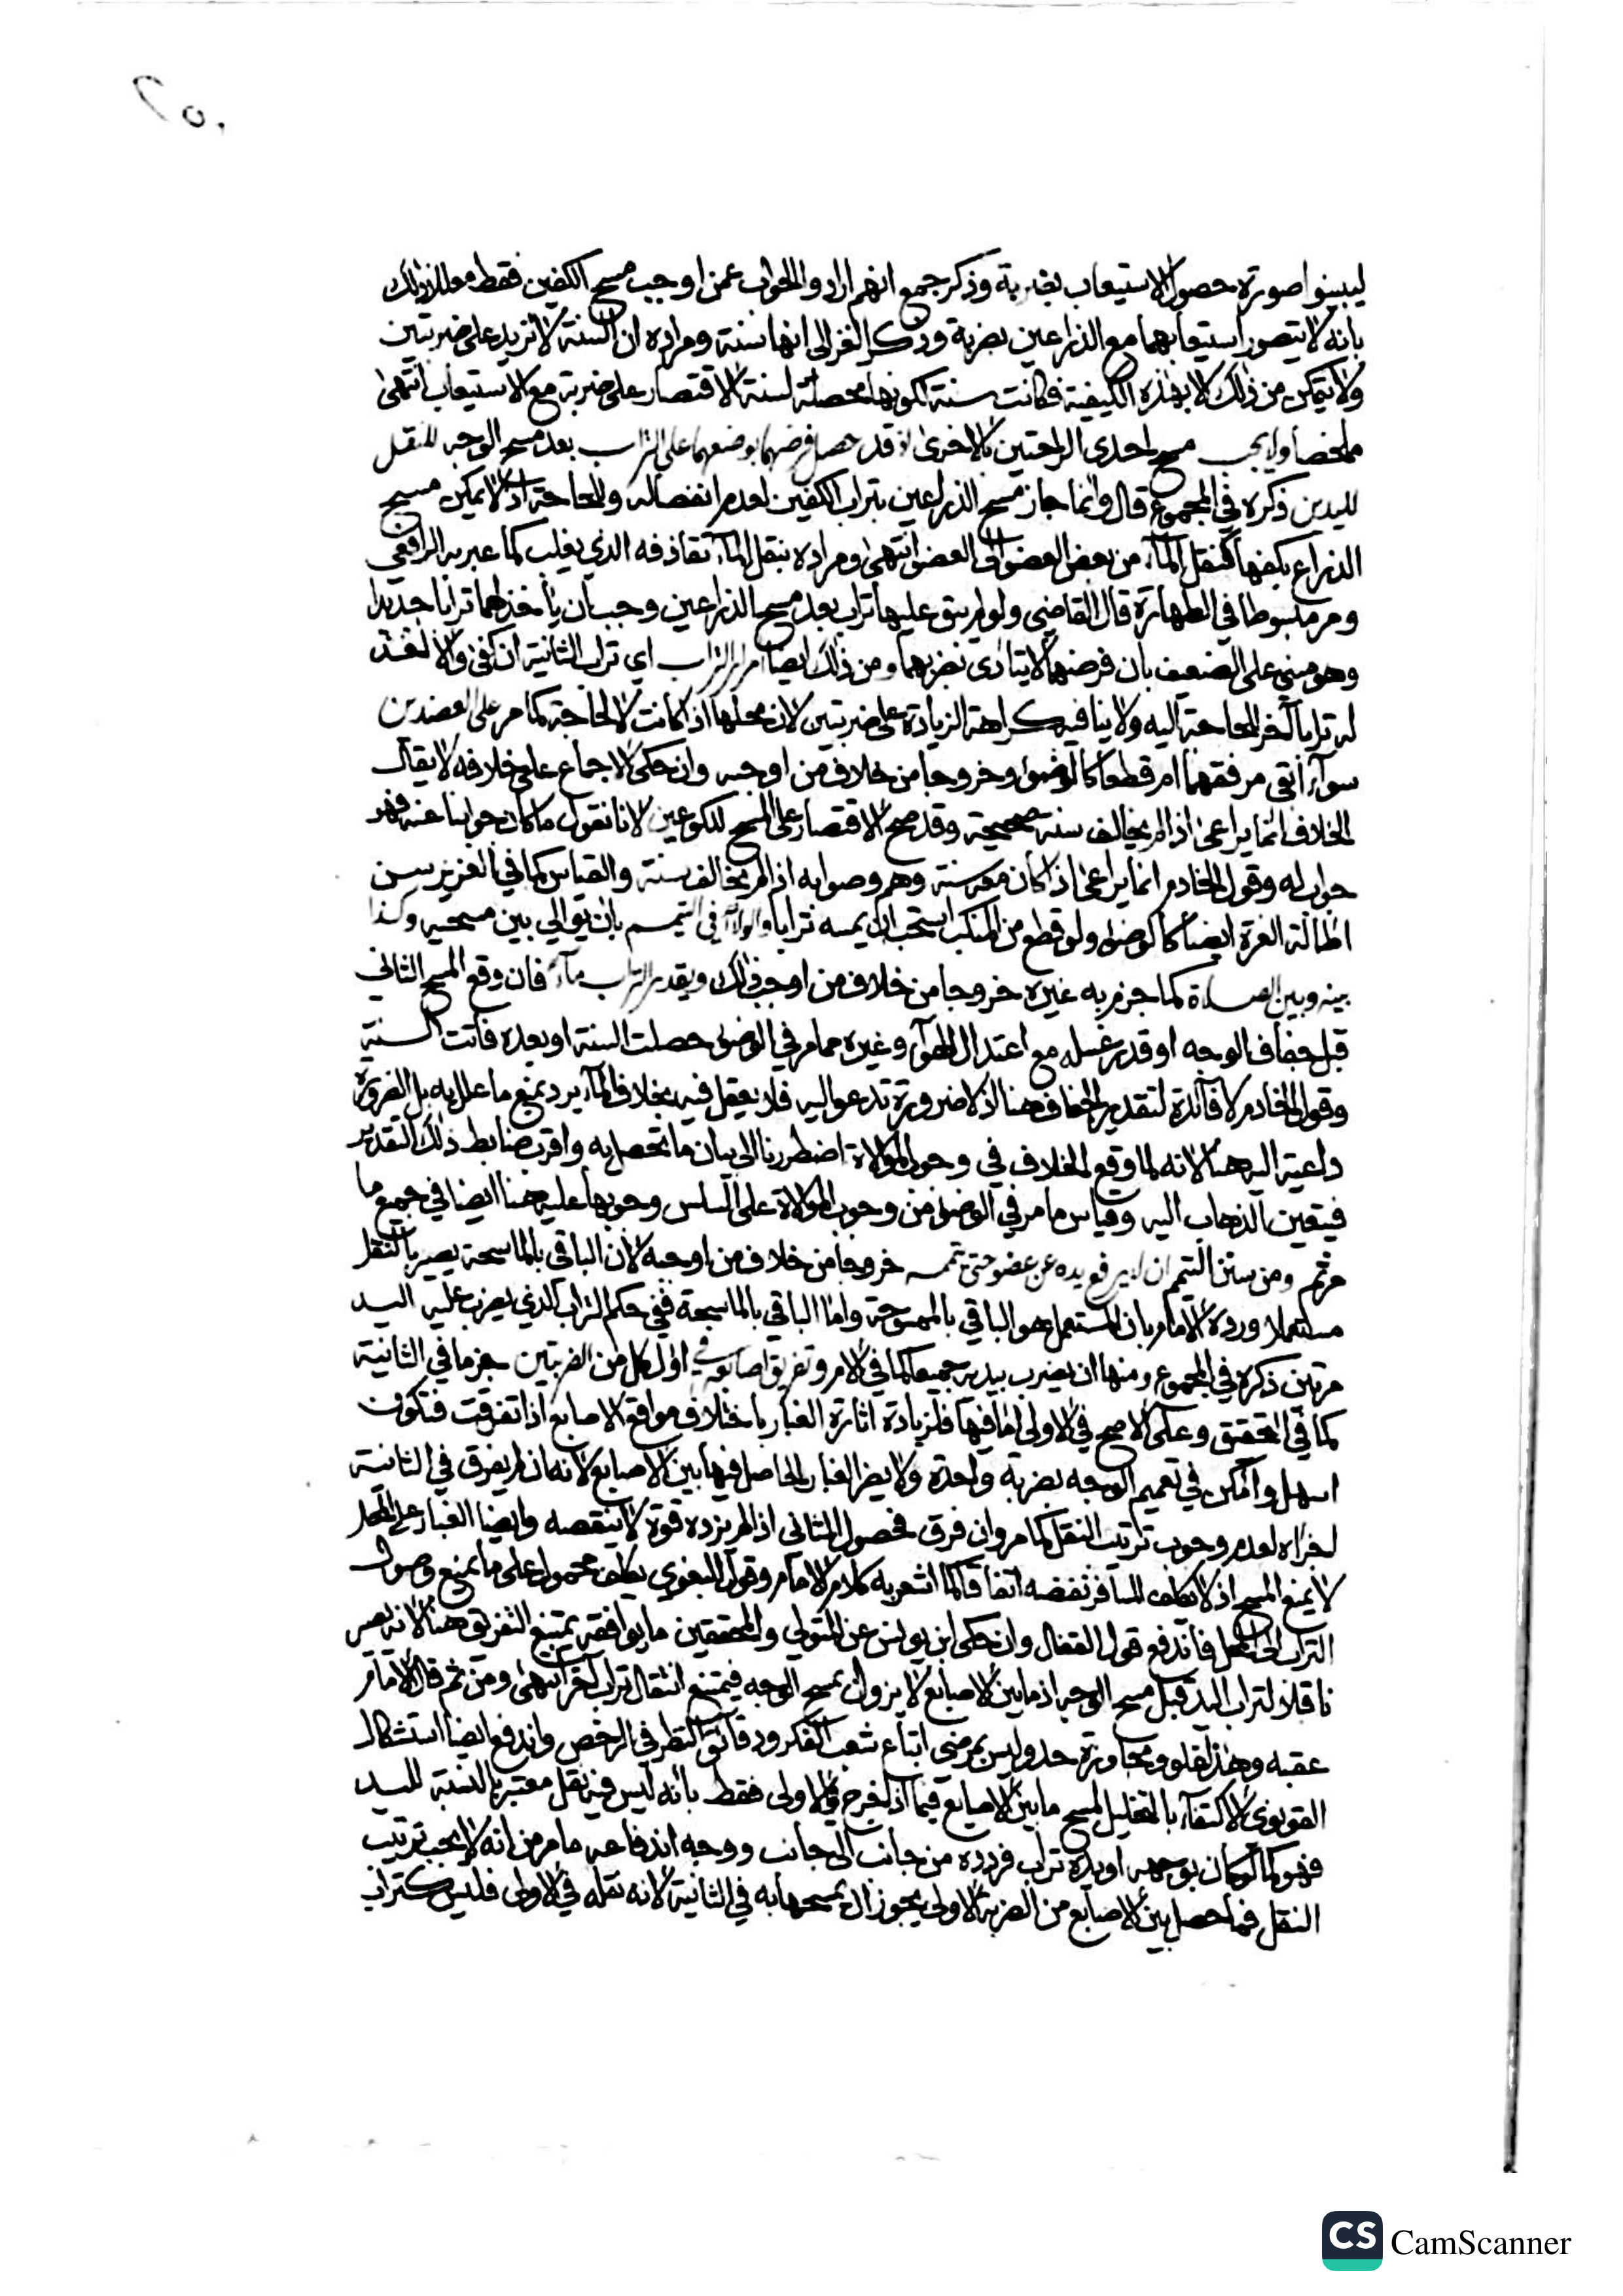 ٢٥٠
ليبينوا صورة حصول الاستيعاب بضربة وذكر جمع انهم ارادوا الجواب عمن اوجب مسح الكفين فقط معللا ذلك
بانه لا يتصور استيعابهما مع الذراعين بضربة وذكر الغزالي انها سنة ومراده ان السنة لا تزيد على ضربتين
ولا يتمكن من ذلك الا بهذه الكيفية فكانت سنة لكونها محصلة لسنة الاقتصار على ضربة مع الاستيعاب انتهى
ملخصا ولا يجب مسح احدى الراحتين بالاخرى اذ قد حصل فرضهما بوضعهما على التراب بعد مسح الوجه للنقل
لليدين ذكره في المجموع قال وانما جاز مسح الذراعين بتراب الكفين لعدم انفصاله وللحاجة اذ لا يمكن مسح
الذراع بكفها كنقل المآء من بعض العضو الى العضو انتهى ومراده بنقل المآء تقاذفه الذي يغلب كما عبر به الرافعي
ومر مبسوطا في الطهارة قال القاضي ولو لم يبق عليها تراب بعد مسح الذراعين وجب ان ياخذ لهما ترابا جديدا
وهو مبني على الضعيف بان فرضهما لا يتادى بضربهما ومن ذلك ايضا امرار التراب اي تراب الثانية ان كفى والا اخذ
له ترابا آخر للحاجة اليه ولا ينافيه كراهة الزيادة على ضربتين لان محلها اذا كانت لا لحاجة كما مر على العضدين
سوآء أبقي مرفقهما ام قطعا كالوضوء وخروجا من خلاف من اوجبه وان حكى الاجماع على خلافه لا يقال
الخلاف انما يراعى اذا لم يخالف سنة صحيحة وقد صح الاقتصار على المسح للكوعين لانا نقول ما كان جوابنا عنه فهو
جواب له وقول الخادم انما يراعى اذا كان معه سنة وهم وصوابه اذا لم يخالف سنة والقياس كما في العزيز سن
اطالة الغرة ايضا كالوضوء ولو قطع من المنكب استحب ان يمسه ترابا والولآء في التيمم بان يوالي بين مسحيه وكذا
بينه وبين الصلاة كما جزم به غيره خروجا من خلاف من اوجب ذلك ويقدر التراب مآء فان وقع المسح الثاني
قبل جفاف الوجه او قدر غسله مع اعتدال الهوآء وغيره مما مر في الوضوء حصلت السنة او بعده فاتت السنة
وقول الخادم لا فآئدة لتقدير الجفاف هنا اذ لا ضرورة تدعو اليه فلا يعقل فيه بخلاف المآء يرد بمنع ما علل به بل الضرورة
داعية اليه هنا لانه لما وقع الخلاف في وجوب الموالاة اضطررنا الى بيان ما تحصل به واقرب ضابط ذلك التقدير
فيتعين الذهاب اليه وقياس ما مر في الوضوء من وجوب الموالاة على السلس وجوبها عليه هنا ايضا في جميع ما
مر ثم ومن سنن التيمم ان لا يرفع يده عن عضو حتى يتمه خروجا من خلاف من اوجبه لان الباقي بالماسحة يصير بالنقل
مستعملا ورده الامام بان المستعمل هو الباقي بالممسوحة واما الباقي بالماسحة ففي حكم التراب الذي يضرب عليه اليد
مرتين ذكره في المجموع ومنها ان يضرب بيديه جميعا كما في الام وتفريق اصابعه في اول كل من الضربتين جزما في الثانية
كما في التحقيق وعلى الاصح في الاولى اما فيها فلزيادة اثارة الغبار باختلاف مواقع الاصابع اذا تفرقت فتكون
اسهل وامكن في تعميم الوجه بضربة واحدة ولا يضر الغبار الحاصل فيها بين الاصابع لانه ان لم يفرق في الثانية
اجزاه لعدم وجوب ترتيب النقل كما مر وان فرق فحصول الثاني اذا لم يزده قوة لا ينقصه وايضا الغبار على المحل
لا يمنع المسح اذ لا يكلف المسافر نفضه اتفاقا كما اشعر به كلام الامام وقول البغوي يكلف محمول على ما يمنع وصول
التراب الى المحل فاندفع قول القفال وان حكى ابن يونس عن المتولي والمحققين ما يوافقه يمتنع التفريق هنا لانه يصير
ناقلا لتراب اليد قبل مسح الوجه اذ ما بين الاصابع لا يزول بمسح الوجه فيمتنع انتقال تراب آخر انتهى ومن ثم قال الامام
عقبه وهذا غلو ومجاوزة حد وليس بمرضي اتباع شعب الفكر ودقائق النظر في الرخص واندفع ايضا استشكال
القونوي الاكتفآء بالتخليل لمسح ما بين الاصابع فيما اذا فرج في الاولى فقط بانه ليس فيه نقل معتبر بالنسبة لليد
فهو كما لو كان بوجهه او يده تراب فردده من جانب الى جانب ووجه اندفاعه ما مر من انه لا يجب ترتيب
النقل فما حصل بين الاصابع من الضربة الاولى يجوز ان يمسحها به في الثانية لانه نقله في الاولى فليس كتراب
CS CamScanner